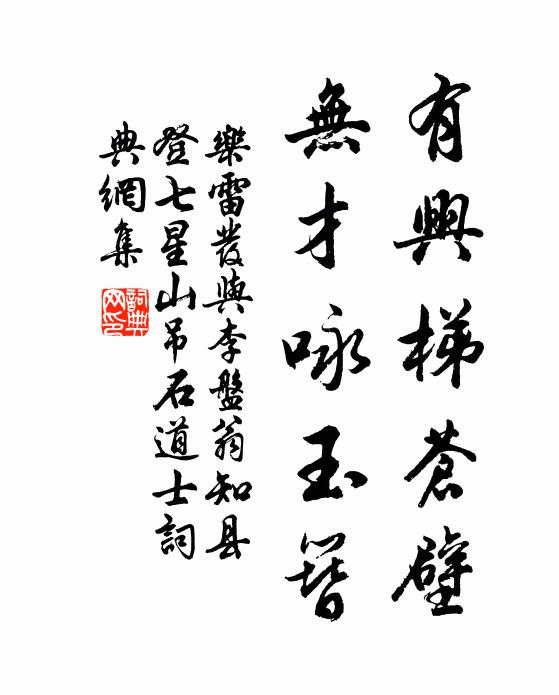 有興梯蒼壁
無才咏玉簪
樂雷發與李盤翁知县
登七星山吊石道士詞
典網集
詞典網印